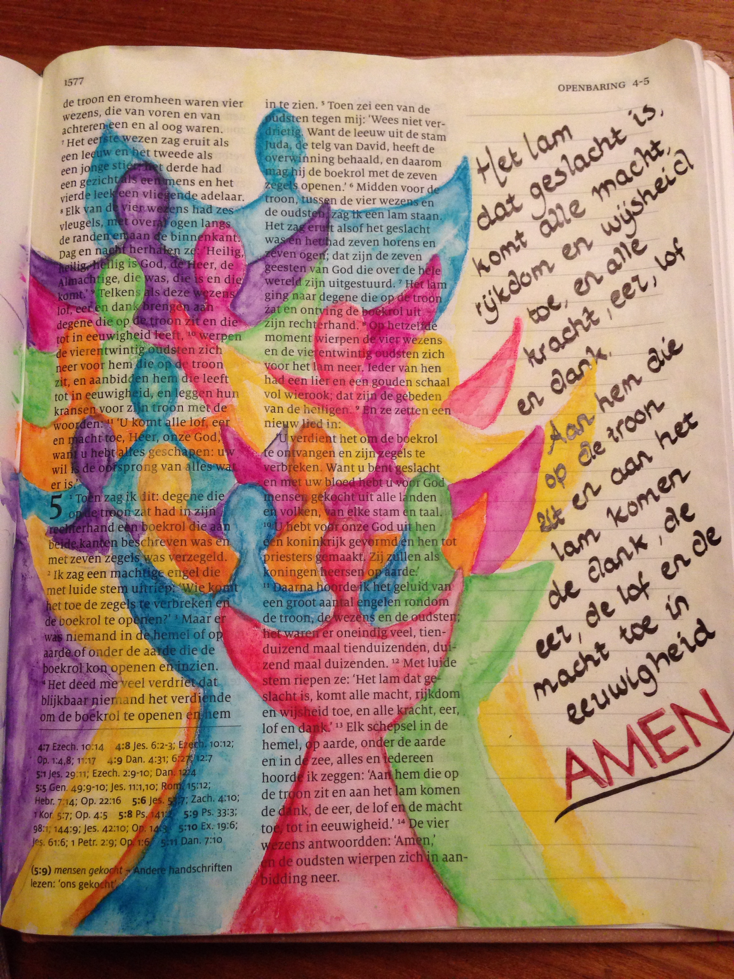 1577
OPENBARING 4-5
de troon en eromheen waren vier
wezens, die van voren en van
achteren een en al oog waren.
7 Het eerste wezen zag eruit als
een leeuw en het tweede als
een jonge stier, het derde had
een gezicht als een mens en het
vierde leek een vliegende adelaar.
8 Elk van de vier wezens had zes
vleugels, met overal ogen langs
de randen en aan de binnenkant.
Dag en nacht herhalen ze: 'Heilig,
heilig, heilig is God, de Heer, de
Almachtige, die was, die is en die
komt.' 9 Telkens als deze wezens
lof, eer en dank brengen aan
degene die op de troon zit en die
tot in eeuwigheid leeft, 10 werpen
de vierentwintig oudsten zich
neer voor hem die op de troon
zit, en aanbidden hem die leeft
tot in eeuwigheid, en leggen hun
kransen voor zijn troon met de
woorden: 11 'U komt alle lof, eer
en macht toe, Heer, onze God,
want u hebt alles geschapen: uw
wil is de oorsprong van alles wat
er is.'
5 1 Toen zag ik dit: degene die
op de troon zat had in zijn
rechterhand een boekrol die aan
beide kanten beschreven was en
met zeven zegels was verzegeld.
2 Ik zag een machtige engel die
met luide stem uitriep: 'Wie komt
het toe de zegels te verbreken en
de boekrol te openen?' 3 Maar er
was niemand in de hemel of op
aarde of onder de aarde die de
boekrol kon openen en inzien.
4 Het deed me veel verdriet dat
blijkbaar niemand het verdiende
om de boekrol te openen en hem
4:7 Ezech. 10:14 4:8 Jes. 6:2-3; Ezech. 10:12;
Op. 1:4,8; 11:17 4:9 Dan. 4:31; 6:27; 12:7
5:1 Jes. 29:11; Ezech. 2:9-10; Dan. 12:4
5:5 Gen. 49:9-10; Jes. 11:1,10; Rom. 15:12;
Hebr. 7:14; Op. 22:16 5:6 Jes. 53:7; Zach. 4:10;
1 Kor. 5:7; Op. 4:5 5:8 Ps. 141:2 5:9 Ps. 33:3;
98:1; 144:9; Jes. 42:10; Op. 14:3 5:10 Ex. 19:6;
Jes. 61:6; 1 Petr. 2:9; Op. 1:6 5:11 Dan. 7:10
(5:9) mensen gekocht – Andere handschriften
lezen: 'ons gekocht'.
in te zien. 5 Toen zei een van de
oudsten tegen mij: 'Wees niet ver-
drietig. Want de leeuw uit de stam
Juda, de telg van David, heeft de
overwinning behaald, en daarom
mag hij de boekrol met de zeven
zegels openen.' 6 Midden voor de
troon, tussen de vier wezens en
de oudsten, zag ik een lam staan.
Het zag eruit alsof het geslacht
was en het had zeven horens en
zeven ogen, dat zijn de zeven
geesten van God die over de hele
wereld zijn uitgestuurd. 7 Het lam
ging naar degene die op de troon
zat en ontving de boekrol uit
zijn rechterhand. 8 Op hetzelfde
moment wierpen de vier wezens
en de vierentwintig oudsten zich
voor het lam neer. Ieder van hen
had een lier en een gouden schaal
vol wierook; dat zijn de gebeden
van de heiligen. 9 En ze zetten een
nieuw lied in:
'U verdient het om de boekrol
te ontvangen en zijn zegels te
verbreken. Want u bent geslacht
en met uw bloed hebt u voor God
mensen gekocht uit alle landen
en volken, van elke stam en taal.
10 U hebt voor onze God uit hen
een koninkrijk gevormd en hen tot
priesters gemaakt. Zij zullen als
koningen heersen op aarde.'
11 Daarna hoorde ik het geluid van
een groot aantal engelen rondom
de troon, de wezens en de oudsten;
het waren er oneindig veel, tien-
duizend maal tienduizenden, dui-
zend maal duizenden. 12 Met luide
stem riepen ze: 'Het lam dat ge-
slacht is, komt alle macht, rijkdom
en wijsheid toe, en alle kracht, eer,
lof en dank.' 13 Elk schepsel in de
hemel, op aarde, onder de aarde
en in de zee, alles en iedereen
hoorde ik zeggen: 'Aan hem die op
de troon zit en aan het lam komen
de dank, de eer, de lof en de macht
toe, tot in eeuwigheid.' 14 De vier
wezens antwoordden: 'Amen,'
en de oudsten wierpen zich in aan-
bidding neer.
Het lam
dat geslacht is,
komt alle macht,
rijkdom en wijsheid
toe, en alle
kracht, eer, lof
en dank.
Aan hem die
op de troon
zit en aan het
lam komen
de dank, de
eer, de lof en de
macht toe in
eeuwigheid
AMEN